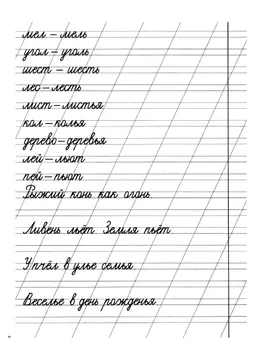 мел – мель
угол – уголь
шест – шесть
лес – лесть
лист – листья
кол – колья
дерево – деревья
лей – льют
пей – пьют
Рыжий конь как огонь.
Ливень льёт. Земля пьёт.
У пчёл в улье семья.
Веселье в день рожденья.